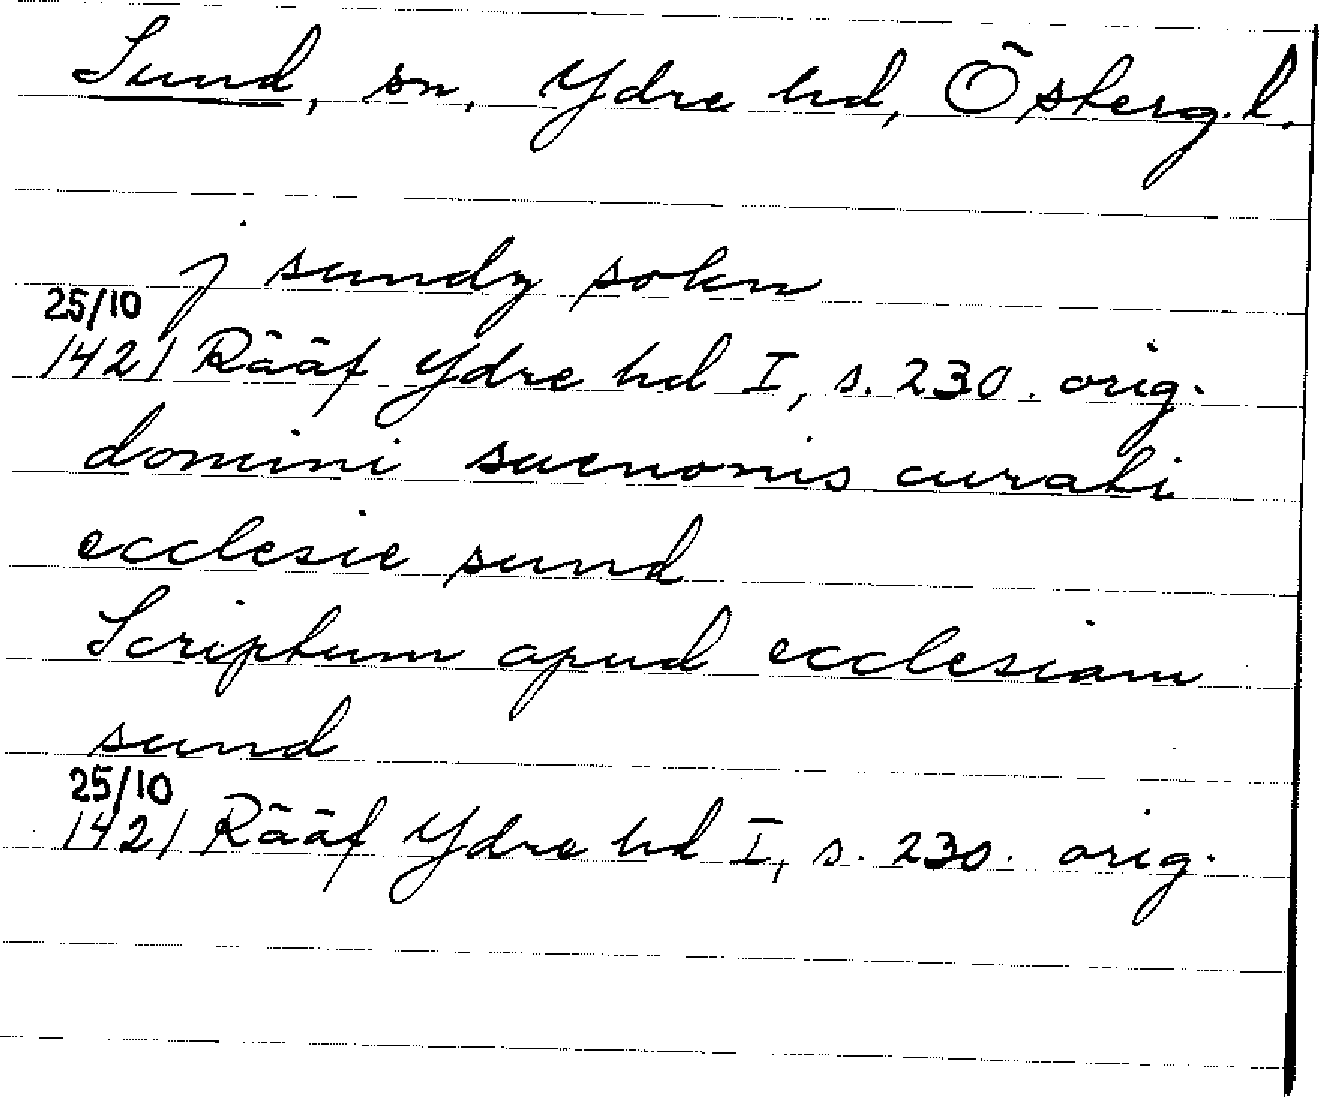 Sund, sn, Ydre hd, Österg. l.
j sundz sokn
25/10
1421 Rääf Ydre hd I, s. 230. orig.
domini suenonis curati
ecclesie sund
Scriptum apud ecclesiam
sund
25/10
1421 Rääf Ydre hd I, s. 230. orig.